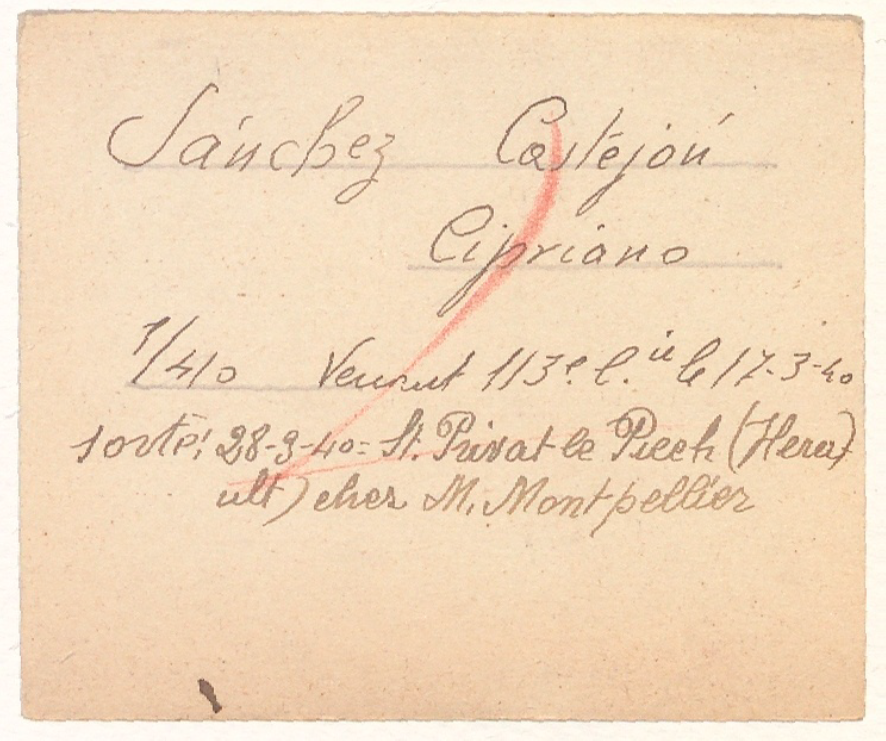 Sánchez Castejón
Cipriano
1/410 Venant 113e. C. ie le 17-3-40
sorté: 28-9-40= St. Privat-le Piech (Hera
ult) chez M. Montpellier